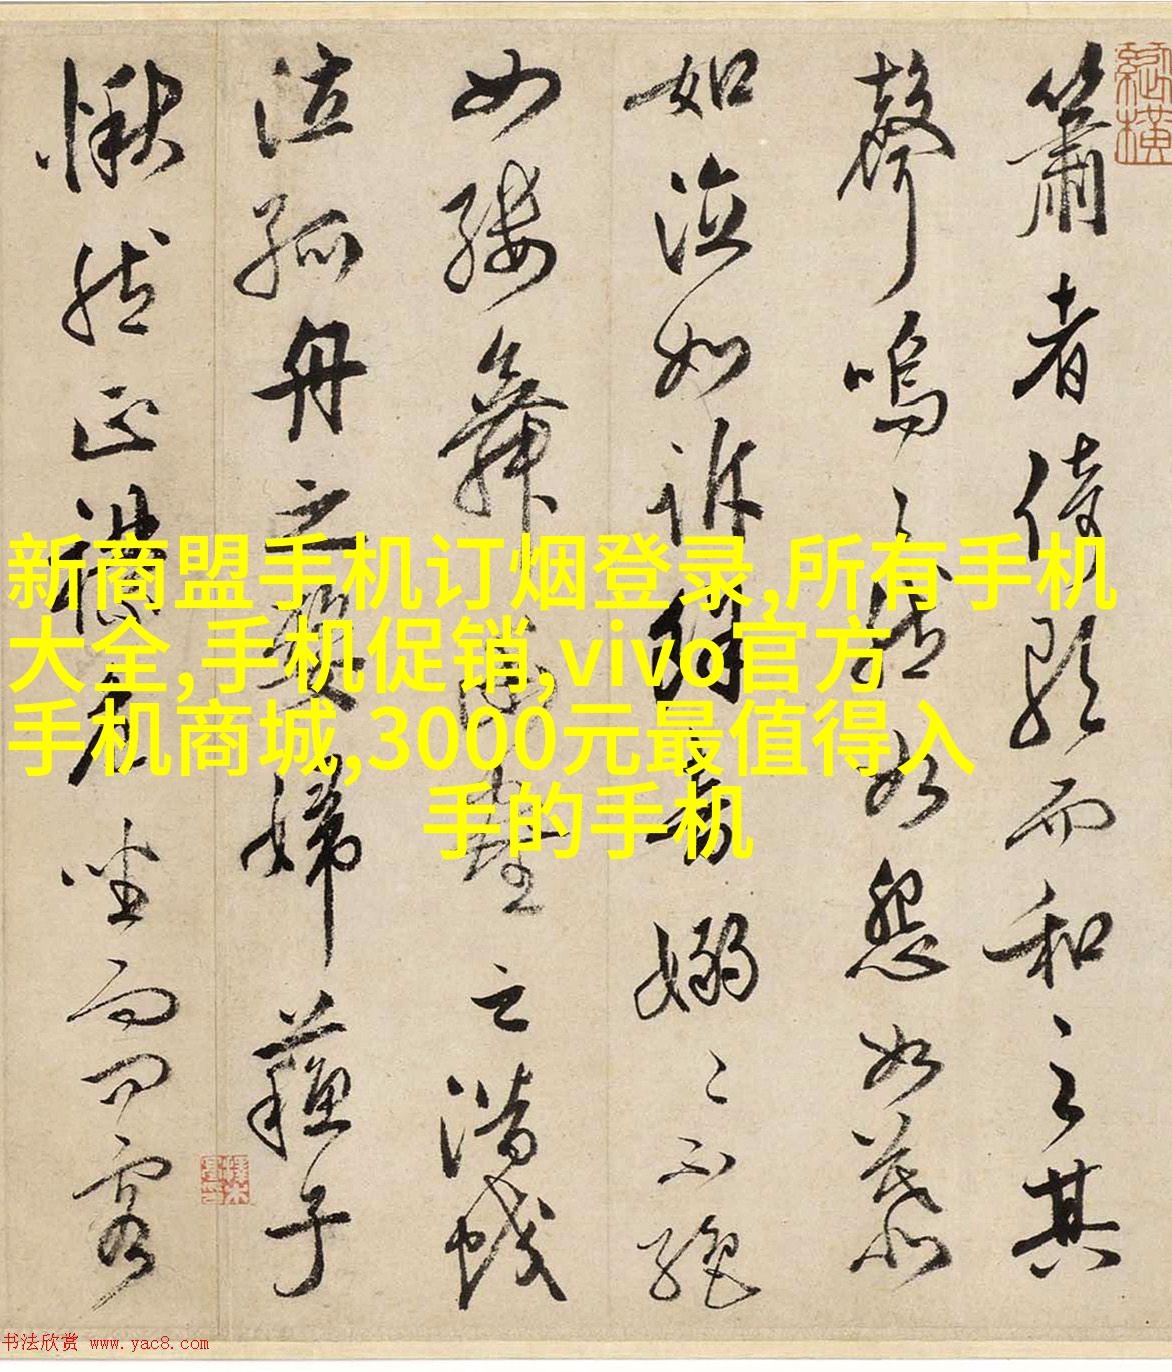 簫者倚歌而和之其
聲嗚〻然如怨如慕
如泣如訴餘音嫋〻不絕
如縷舞幽壑之潛蛟
泣孤舟之嫠婦蘇子
愀然正襟危坐而問客
新商盟手机订烟登录,所有手机
大全,手机促销,vivo官方
手机商城,3000元最值得入
手的手机
书法欣赏 www.yac8.com